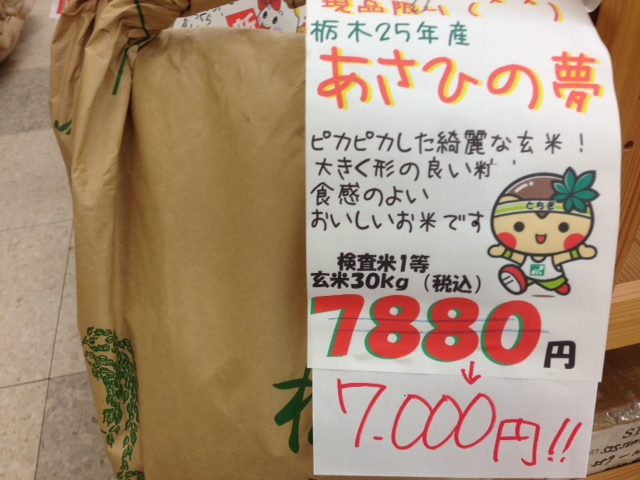 現品限り(^^)
栃木25年産
あさひの夢
ピカピカした綺麗な玄米!
大きく形の良い粒
食感のよい
おいしいお米です
とちぎ
検査米1等
玄米30kg(税込)
7880円
7.000円!!